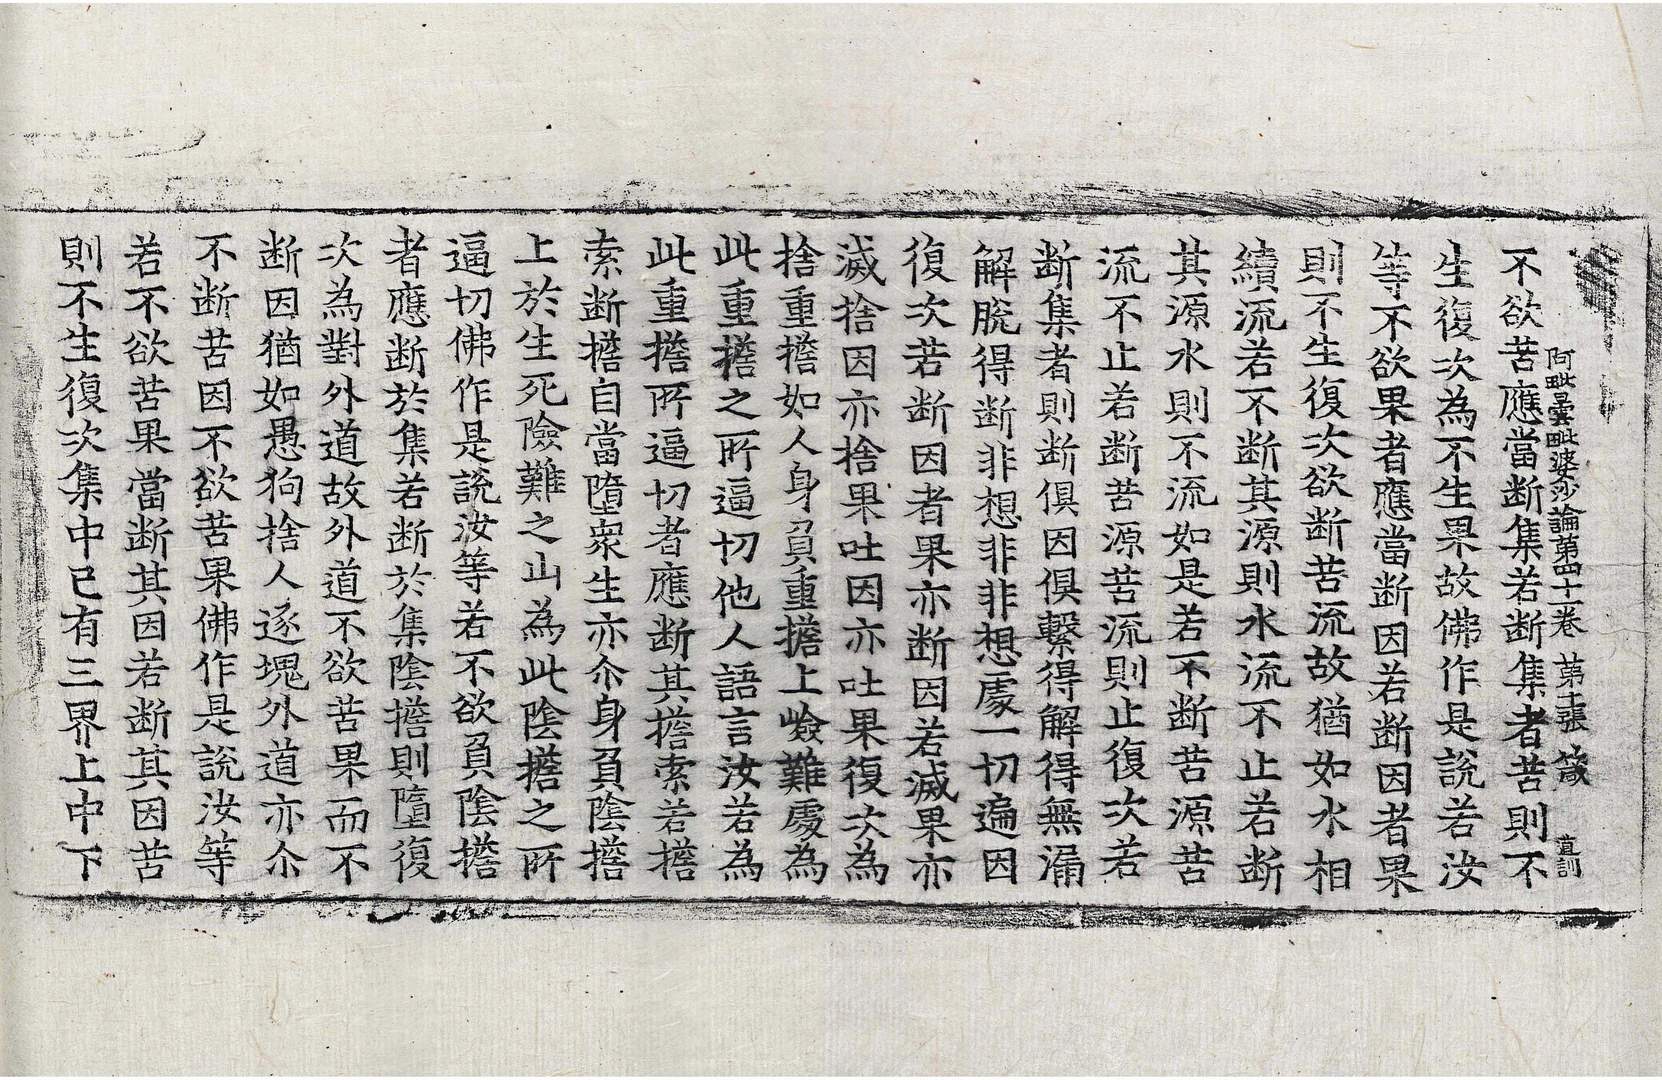 阿毗曇毗婆沙論第四十一卷 第十張 箴 直訓
不欲苦應當断集若断集者苦則不
生復次為不生果故佛作是說若汝
等不欲果者應當断因若断因者果
則不生復次欲断苦流故猶如水相
續流若不断其源則水流不止若断
其源水則不流如是若不断苦源苦
流不止若断苦源苦流則止復次若
断集者則断俱因俱繫得解得無漏
解脫得断非想非非想處一切遍因
復次若断因者果亦断因若滅果亦
滅捨因亦捨果吐因亦吐果復次為
捨重擔如人身負重擔上嶮難處為
此重擔之所逼切他人語言汝若為
此重擔所逼切者應断其擔索若擔
索断擔自當墮衆生亦尒身負陰擔
上於生死險難之山為此陰擔之所
逼切佛作是說汝等若不欲負陰擔
者應断於集若断於集陰擔則墮復
次為對外道故外道不欲苦果而不
断因猶如愚狗捨人逐塊外道亦尒
不断苦因不欲苦果佛作是說汝等
若不欲苦果當断其因若断其因苦
則不生復次集中已有三界上中下